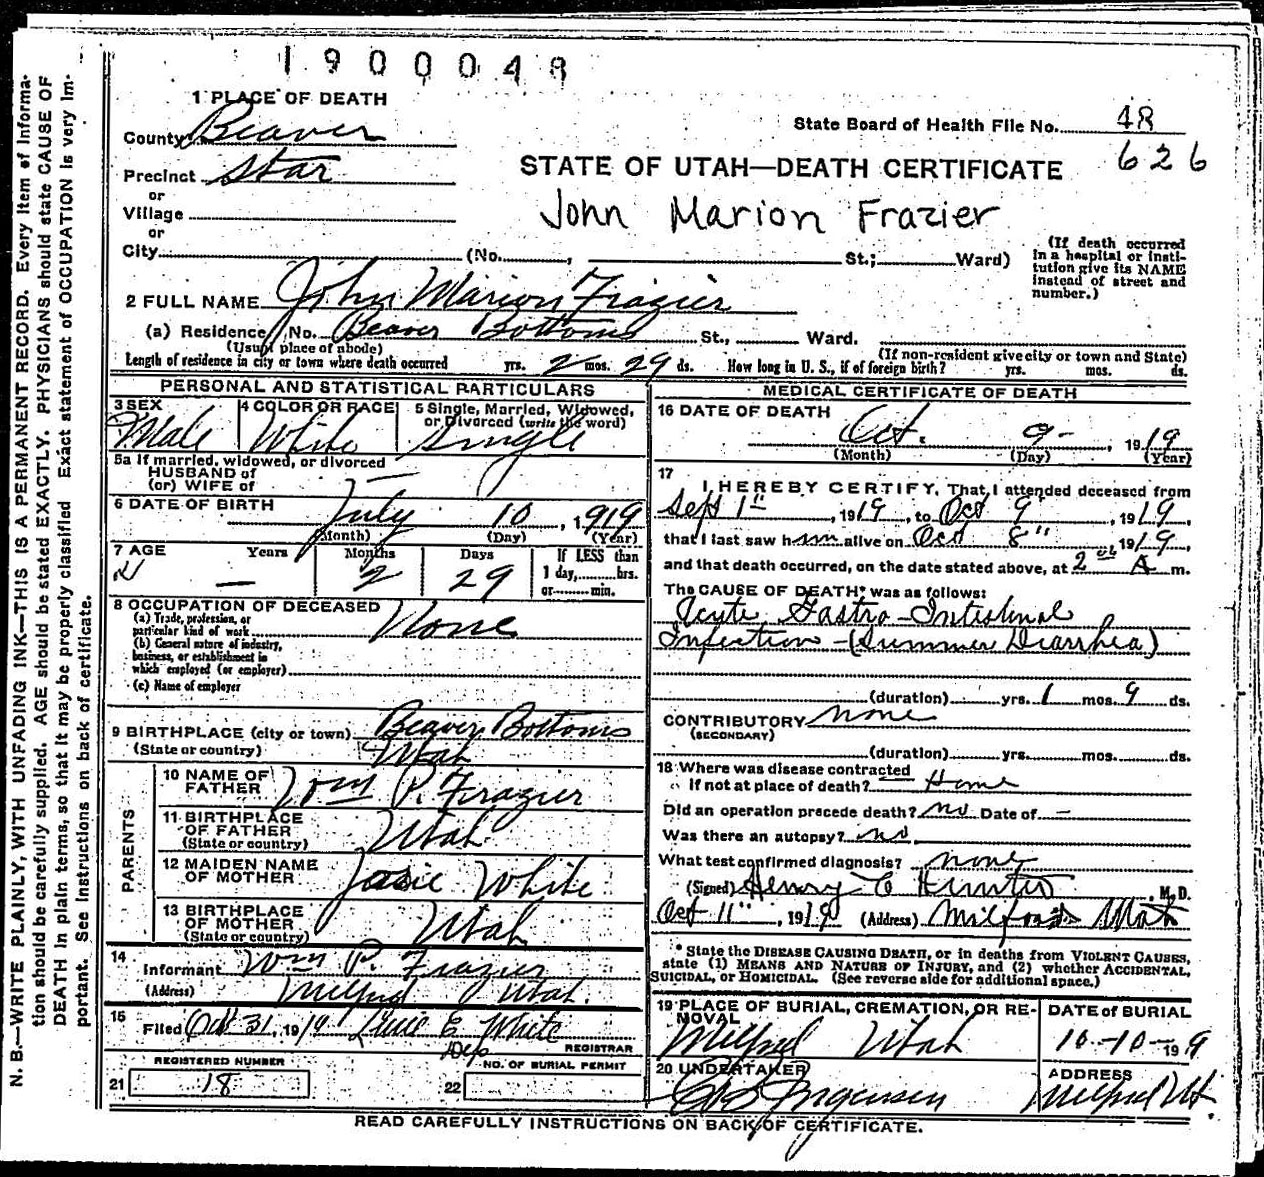 1900048
1 PLACE OF DEATH
County Beaver
State Board of Health File No. 48
Precinct Star
626
STATE OF UTAH—DEATH CERTIFICATE
or
Village
John Marion Frazier
or
City (No. , St.; Ward)
(If death occurred in a hospital or institution give its NAME instead of street and number.)
2 FULL NAME John Marion Frazier
(a) Residence No. Beaver Bottoms St., Ward.
(Usual place of abode) (If non-resident give city or town and State)
Length of residence in city or town where death occurred yrs. 2 mos. 29 ds. How long in U. S., if of foreign birth? yrs. mos. ds.
PERSONAL AND STATISTICAL PARTICULARS
3 SEX 4 COLOR OR RACE 5 Single, Married, Widowed, or Divorced (write the word)
Male White Single
5a If married, widowed, or divorced
HUSBAND of
(or) WIFE of —
6 DATE OF BIRTH July 10, 1919
(Month) (Day) (Year)
7 AGE Years Months Days If LESS than
— 2 29 1 day, hrs.
or min.
8 OCCUPATION OF DECEASED None
(a) Trade, profession, or
particular kind of work
(b) General nature of industry,
business, or establishment in
which employed (or employer)
(c) Name of employer
9 BIRTHPLACE (city or town) Beaver Bottoms
(State or country) Utah
PARENTS
10 NAME OF FATHER Wm P. Frazier
11 BIRTHPLACE OF FATHER
(State or country) Utah
12 MAIDEN NAME OF MOTHER Josie White
13 BIRTHPLACE OF MOTHER
(State or country) Utah
14
Informant Wm P. Frazier
(Address) Milford Utah.
15
Filed Oct 31, 1919 E. White
Dep REGISTRAR
REGISTERED NUMBER NO. OF BURIAL PERMIT
21 18 22
MEDICAL CERTIFICATE OF DEATH
16 DATE OF DEATH
Oct. 9-, 1919
(Month) (Day) (Year)
17
I HEREBY CERTIFY, That I attended deceased from
Sept 1st, 1919, to Oct 9, 1919,
that I last saw him alive on Oct 8", 1919,
and that death occurred, on the date stated above, at 2 A m.
The CAUSE OF DEATH* was as follows:
Acute Gastro-Intestinal
Infection-(Summer Diarrhea)
(duration) yrs. 1 mos. 9 ds.
CONTRIBUTORY none
(SECONDARY)
(duration) yrs. mos. ds.
18 Where was disease contracted
If not at place of death? Home
Did an operation precede death? no Date of —
Was there an autopsy? no
What test confirmed diagnosis? none
(Signed) Henry C Hunter, M. D.
Oct 11", 1919 (Address) Milford Utah
* State the DISEASE CAUSING DEATH, or in deaths from VIOLENT CAUSES,
state (1) MEANS AND NATURE OF INJURY, and (2) whether ACCIDENTAL,
SUICIDAL, or HOMICIDAL. (See reverse side for additional space.)
19 PLACE OF BURIAL, CREMATION, OR REMOVAL DATE OF BURIAL
Milford Utah 10-10-1919
20 UNDERTAKER ADDRESS
Jorgensen Milford Ut.
READ CAREFULLY INSTRUCTIONS ON BACK OF CERTIFICATE.
N. B.—WRITE PLAINLY, WITH UNFADING INK—THIS IS A PERMANENT RECORD. Every item of information should be carefully supplied. AGE should be stated EXACTLY. PHYSICIANS should state CAUSE OF DEATH in plain terms, so that it may be properly classified. Exact statement of OCCUPATION is very important. See instructions on back of certificate.